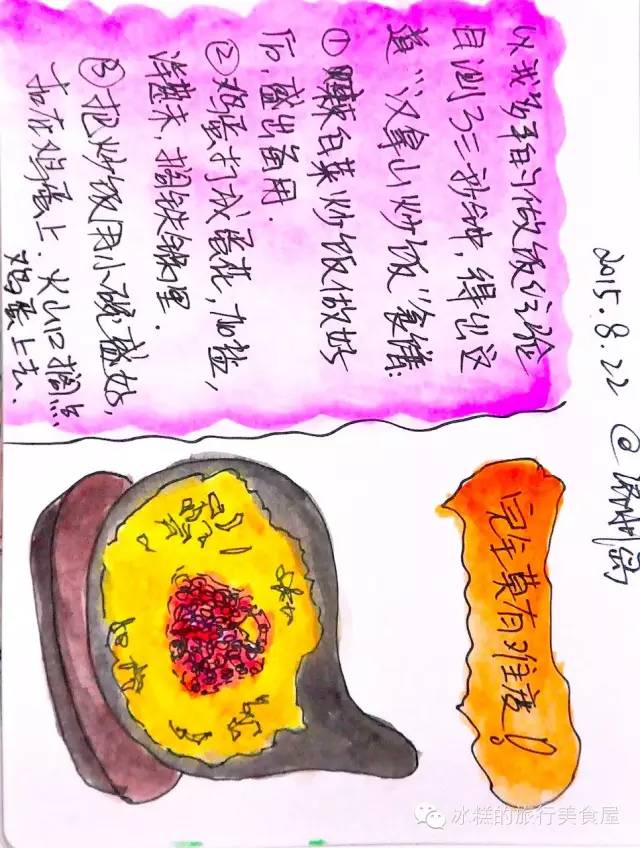 2015.8.22 @
以我多年的做饭经验
目测了三秒钟,得出这
道“汉拿山炒饭”食谱.
① 辣白菜炒饭做好
后,盛出备用.
② 鸡蛋打成蛋花,加盐,
洋葱末,搁铁锅里.
③ 把炒饭用小碗盛好,
扣在鸡蛋上.火山口搁点
鸡蛋上去.
完全莫有难度!
冰糕的旅行美食屋